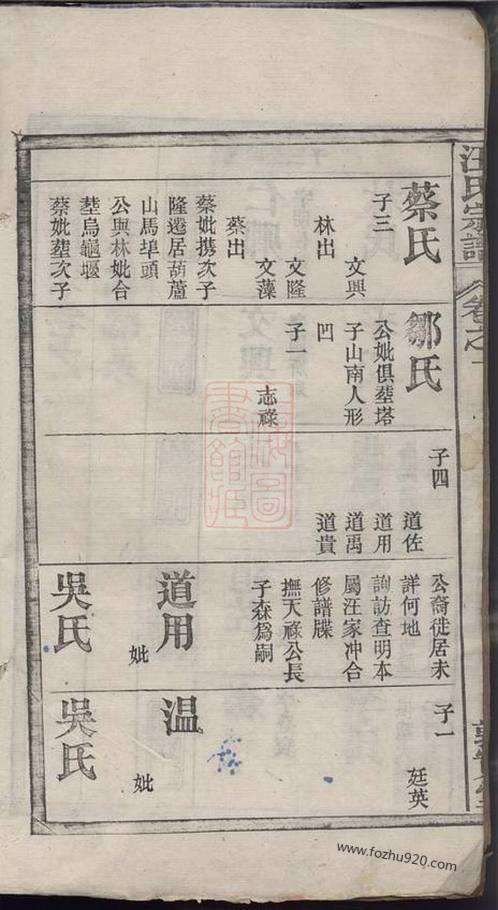 汪氏宗譜
卷之
蔡氏
子三
文興
林出
文隆
文藻
蔡出
蔡妣携次子
隆遷居葫蘆
山馬埠頭
公與林妣合
塟烏龜堰
蔡妣塟次子
鄒氏
公妣俱塟塔
子山南人形
凹
子一
志祿
子四
道佐
道用
道禹
道貴
公裔徙居未
詳何地
詢訪查明本
屬汪家冲合
修譜牒
撫天祿公長
子森為嗣
道用
妣
吳氏
子一
廷英
温
妣
吳氏
上海圖書館藏
www.fozhu920.com